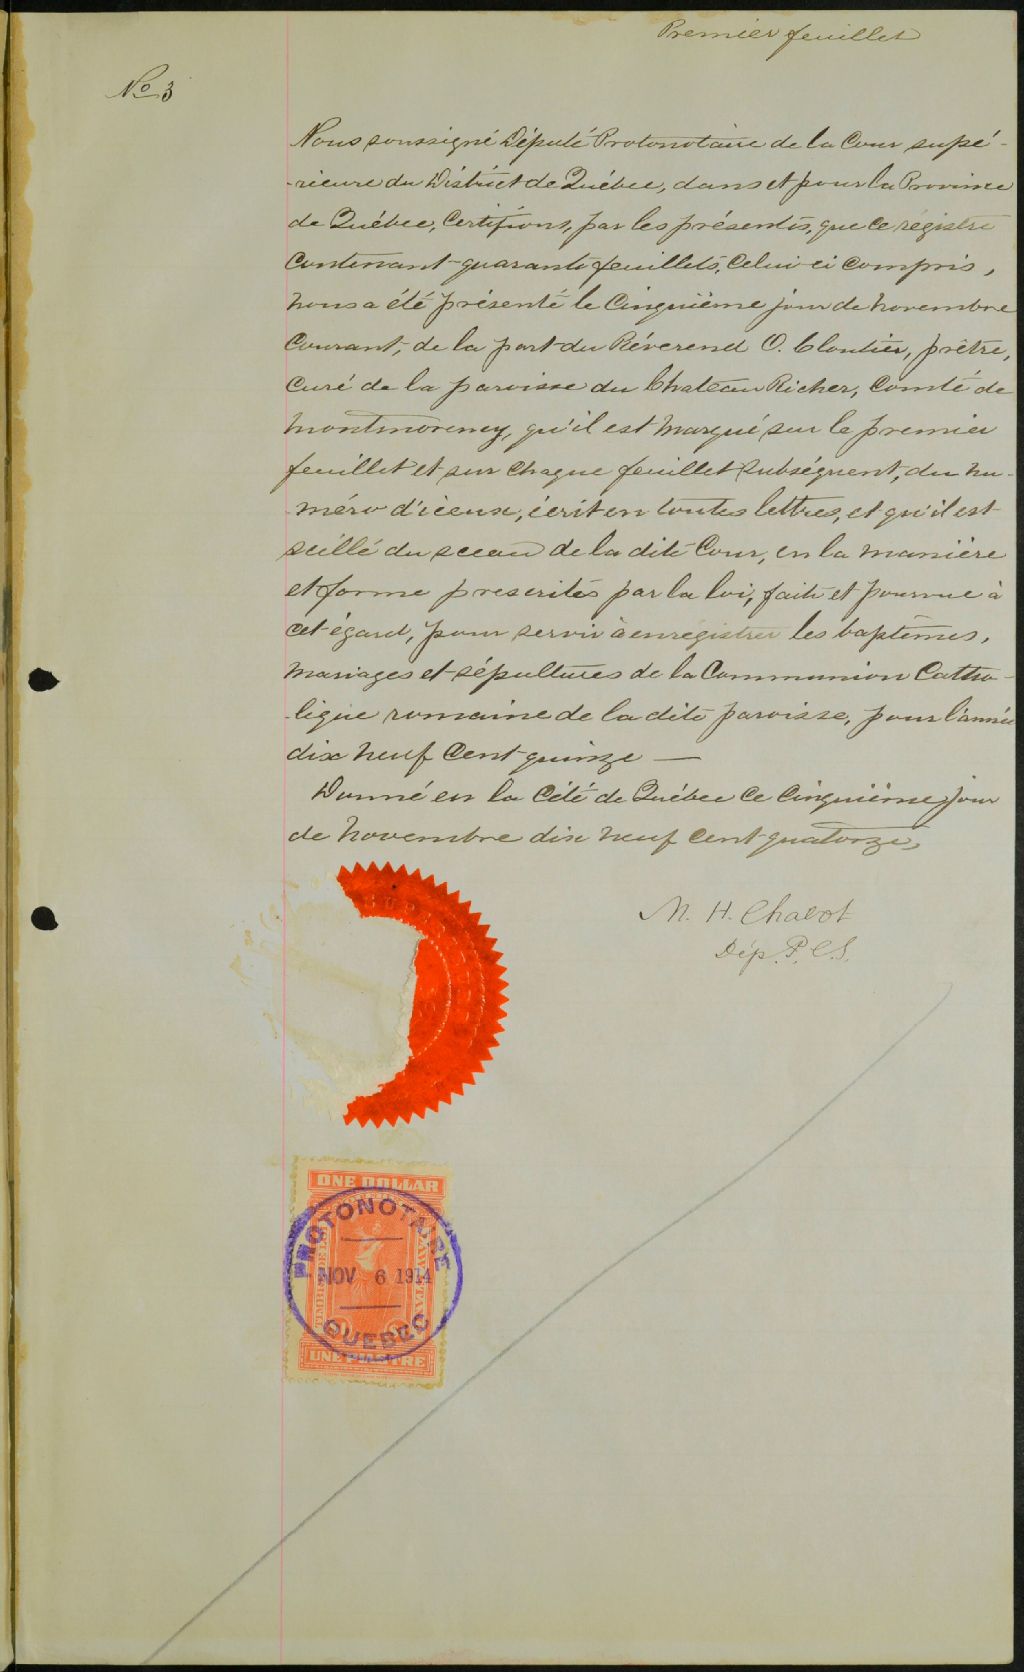 Premier feuillet
No 3
Nous soussigné Député Protonotaire de la Cour supé-
-rieure du District de Québec, dans et pour la Province
de Québec, Certifions, par les présentes, que ce régistre
Contenant quarante feuillets, Celui ci compris,
nous a été présenté le Cinquième jour de novembre
Courant, de la part du Révérend O. Cloutier, prêtre,
Curé de la paroisse du Chateau Richer, Comté de
Montmorency, qu'il est marqué sur le premier
feuillet et sur chaque feuillet subséquent, du nu-
-méro d'iceux, écrit en toutes lettres, et qu'il est
scéllé du sceau de la dite Cour, en la manière
et forme prescrites par la loi, faite et pourvue à
cet égard, pour servir à enrégistrer les baptêmes,
mariages et sépultures de la Communion Catho-
-lique romaine de la dite paroisse, pour l'année
dix neuf Cent quinze —
Donné en la Cité de Québec ce Cinquième jour
de Novembre dix neuf Cent quatorze,
M. H. Chabot
Dép. P. C. S.
ONE DOLLAR
PROTONOTAIRE
NOV 6 1914
QUEBEC
UNE PIASTRE